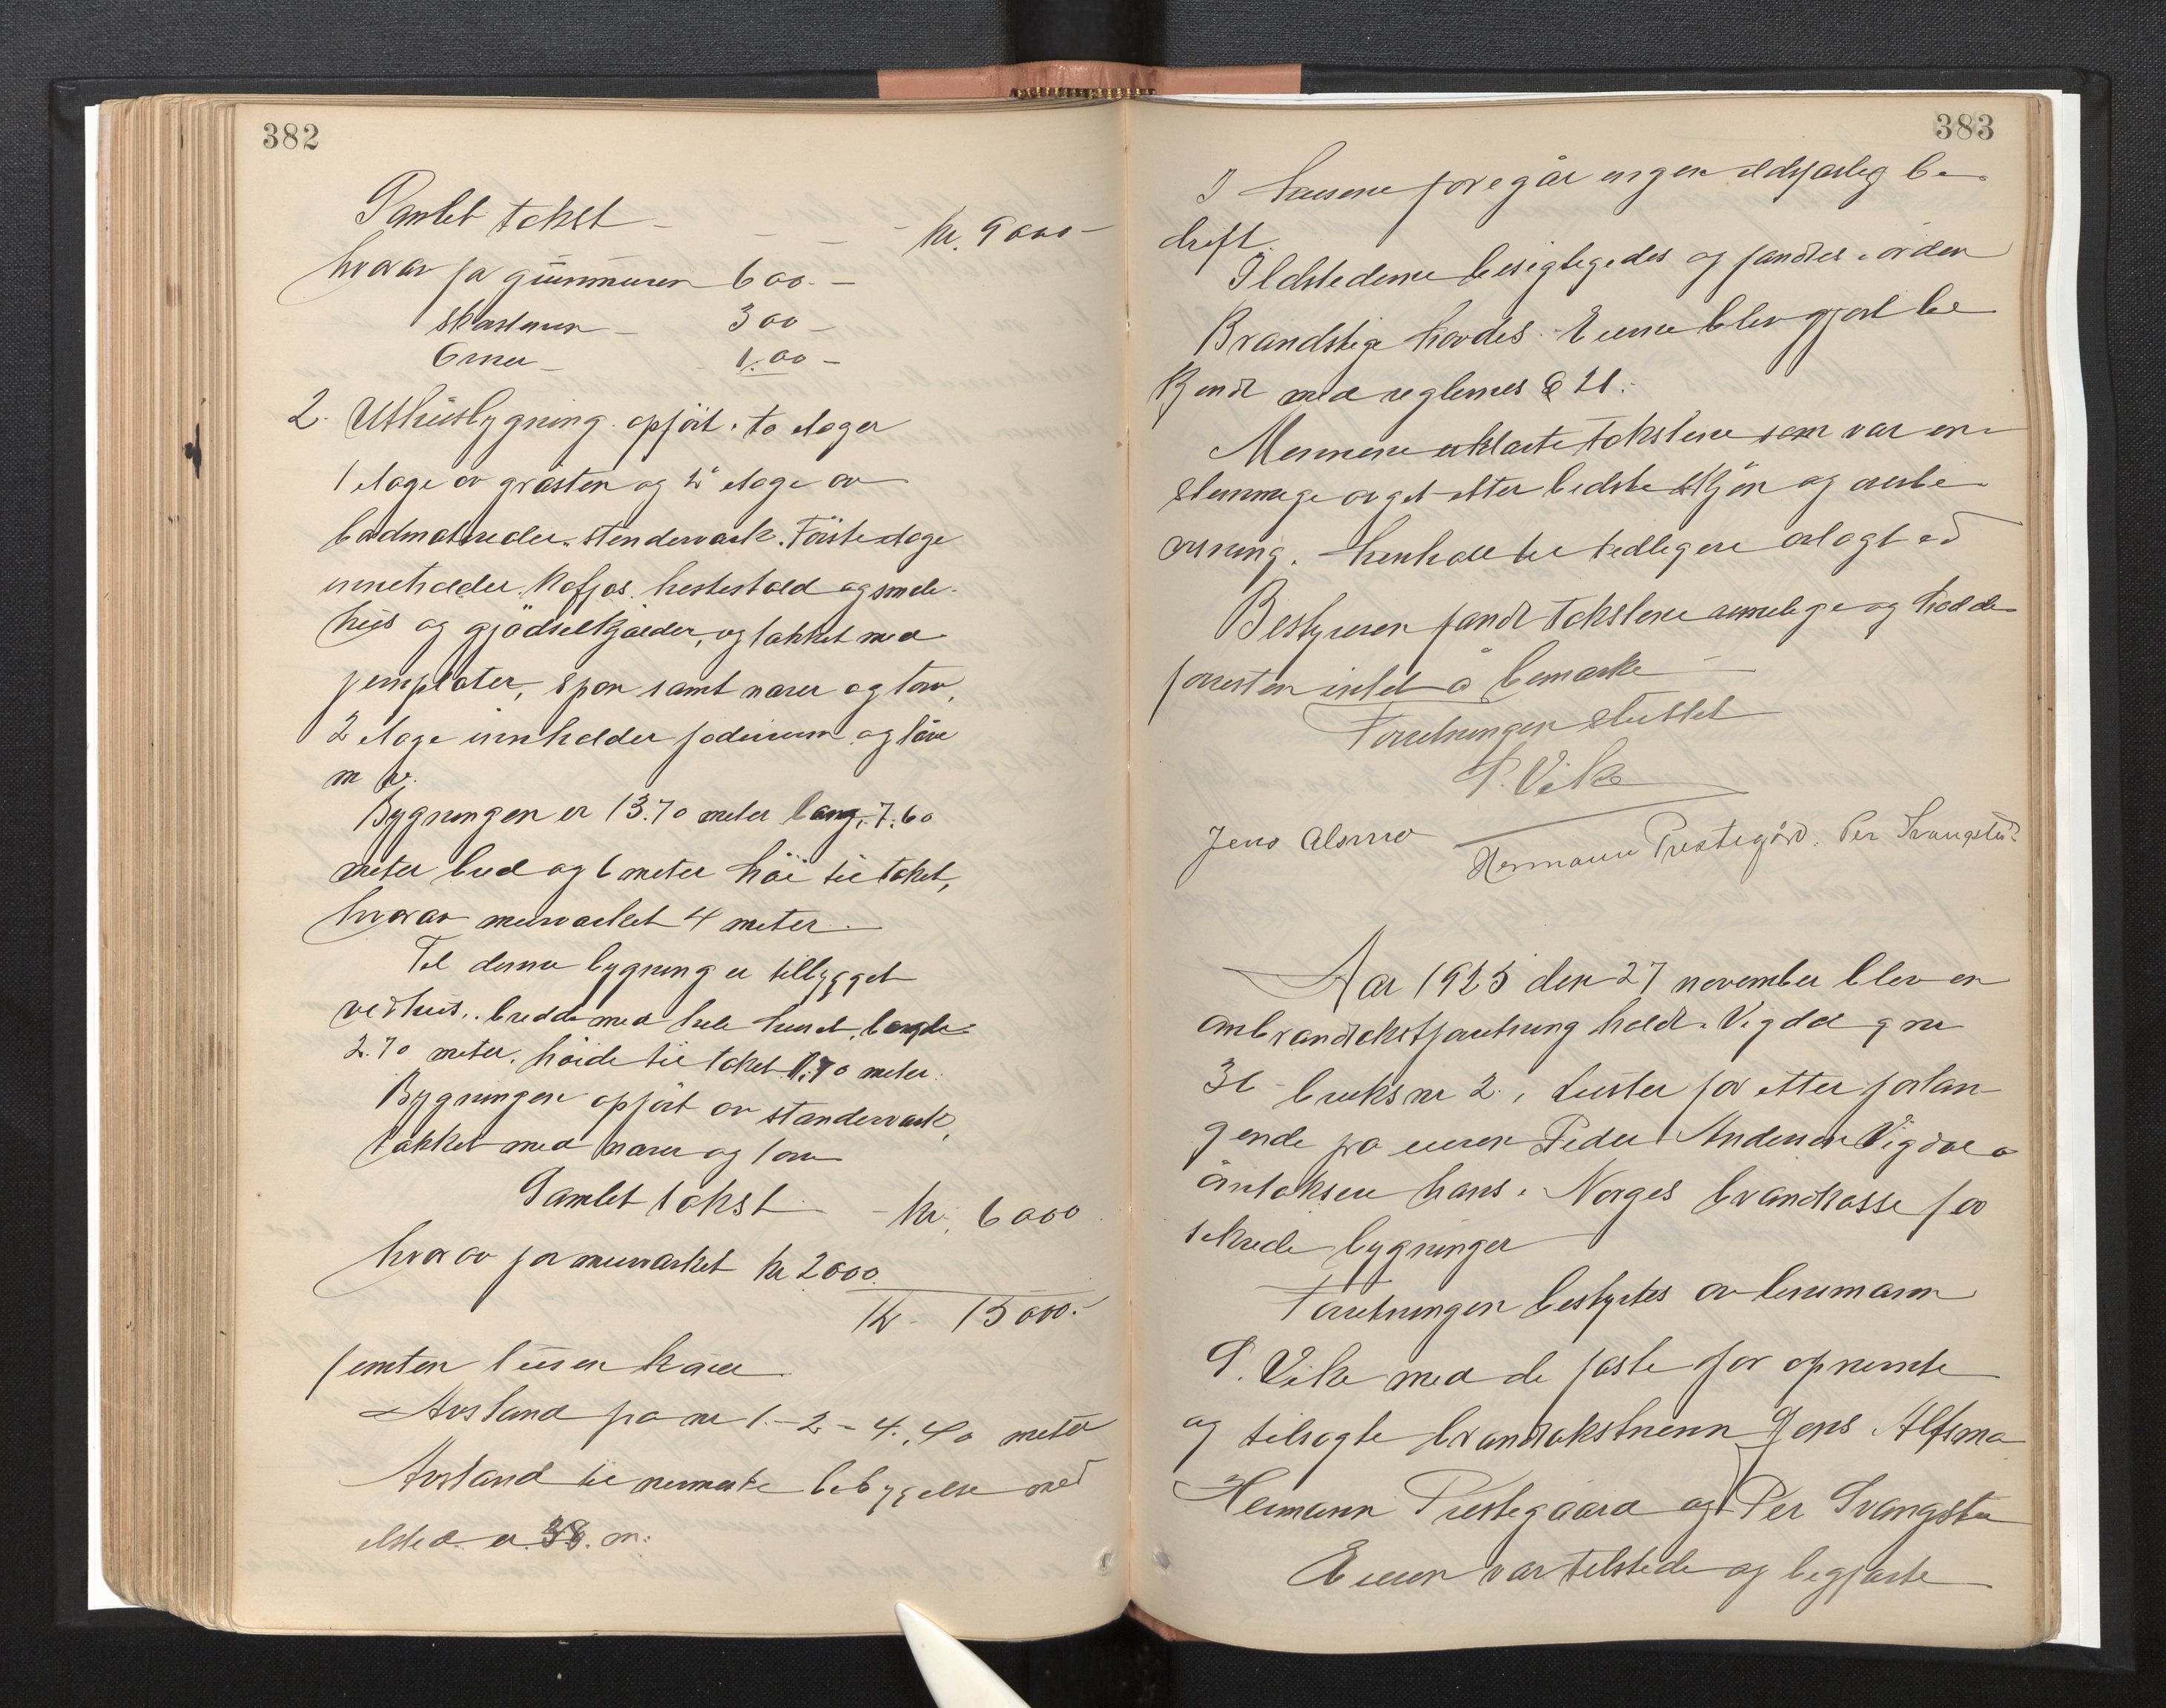 382
Samlet takst - - - - kr. 9000-
hvorav for grunnmuren 600.-
skorstenen - 300-
Ovner - 100-
2. Uthusbygning opført i to etager
1 etage av gråsten og 2 etage av
bordmaterialer i stenderverk. Første etage
inneholder kofjøs, hestestald og smale-
hus og gjødselkjælder, og takket med
jernplater, spon samt næver og torv,
2 etage innholder foderrum og låve
m v.
Bygningen er 13.70 meter lang, 7.60
meter bred og 6 meter høi til taket,
hvorav murverket 4 meter.
Til denne bygning er tilbygget
vedhus, bredde med hele huset, længde
2.70 meter, høide til taket 1.70 meter.
Bygningen opført av stenderverk,
takket med næver og torv
Samlet takst - kr. 6000
hvorav for murverket kr 2000.
Kr 15000.-
femten tusen kroner
Avstand fra nr 1 - 2 - 4.40 meter
Avstand til nærmeste bebyggelse med
ilsted er 38. m.
383
I husene foregår ingen ildsfarlig be-
drift.
Ildstederne besigtigedes og fandtes i orden
Brandstige havdes. Eieren blev gjort be
kjendt med reglernes § 21.
Mennene erklærte takstene som var en-
stemmige avgit etter bedste skjøn og overbe-
visning i henhold til tidligere avlagt ed
Bestyreren fandt takstene rimelige og hadde
forresten intet å bemerke
Forretningen sluttet
S. Vike
Jens Alsmo Hermann Prestegård. Per Svangstu
Aar 1925 den 27 november blev en
ombrandtakstforretning holdt i Vigdal g nr
36 bruks nr 2 i Luster for etter forlan-
gende fra eieren Peder Andersen Vigdal å
omtaksere hans i Norges brandkasse for
sikrede bygninger
Forretningen bestyrtes av lensmann
S. Vike med de faste for opnevnte
og tilsagte brandtakstmenn Jens Alsmo
Hermann Prestegaard og Per Svangstu
Eieren var tilstede og begjærte